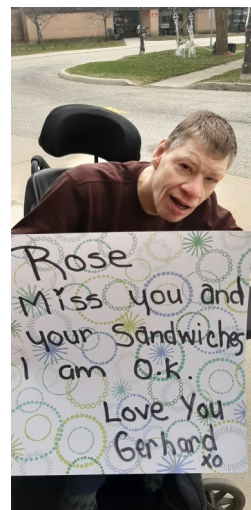 Rose
Miss you and
your Sandwiches
I am O.K.
Love You
Gerhard
xo